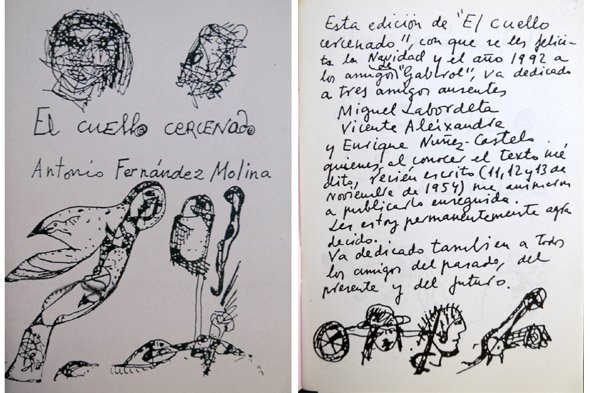 El cuello cercenado
Antonio Fernández Molina
Esta edición de "El cuello
cercenado", con que se les felici-
ta la Navidad y el año 1992 a
los amigos de "Gabirol", va dedicado
a tres amigos ausentes
Miguel Labordeta
Vicente Aleixandre
y Enrique Nuñez-Castelo
quienes, al conocer el texto iné
dito, recien escrito (11, 12 y 13 de
Noviembre de 1954) me animaron
a publicarlo enseguida.
Les estoy permanentemente agra
decido.
Va dedicado tambien a todos
los amigos del pasado, del
presente y del futuro.